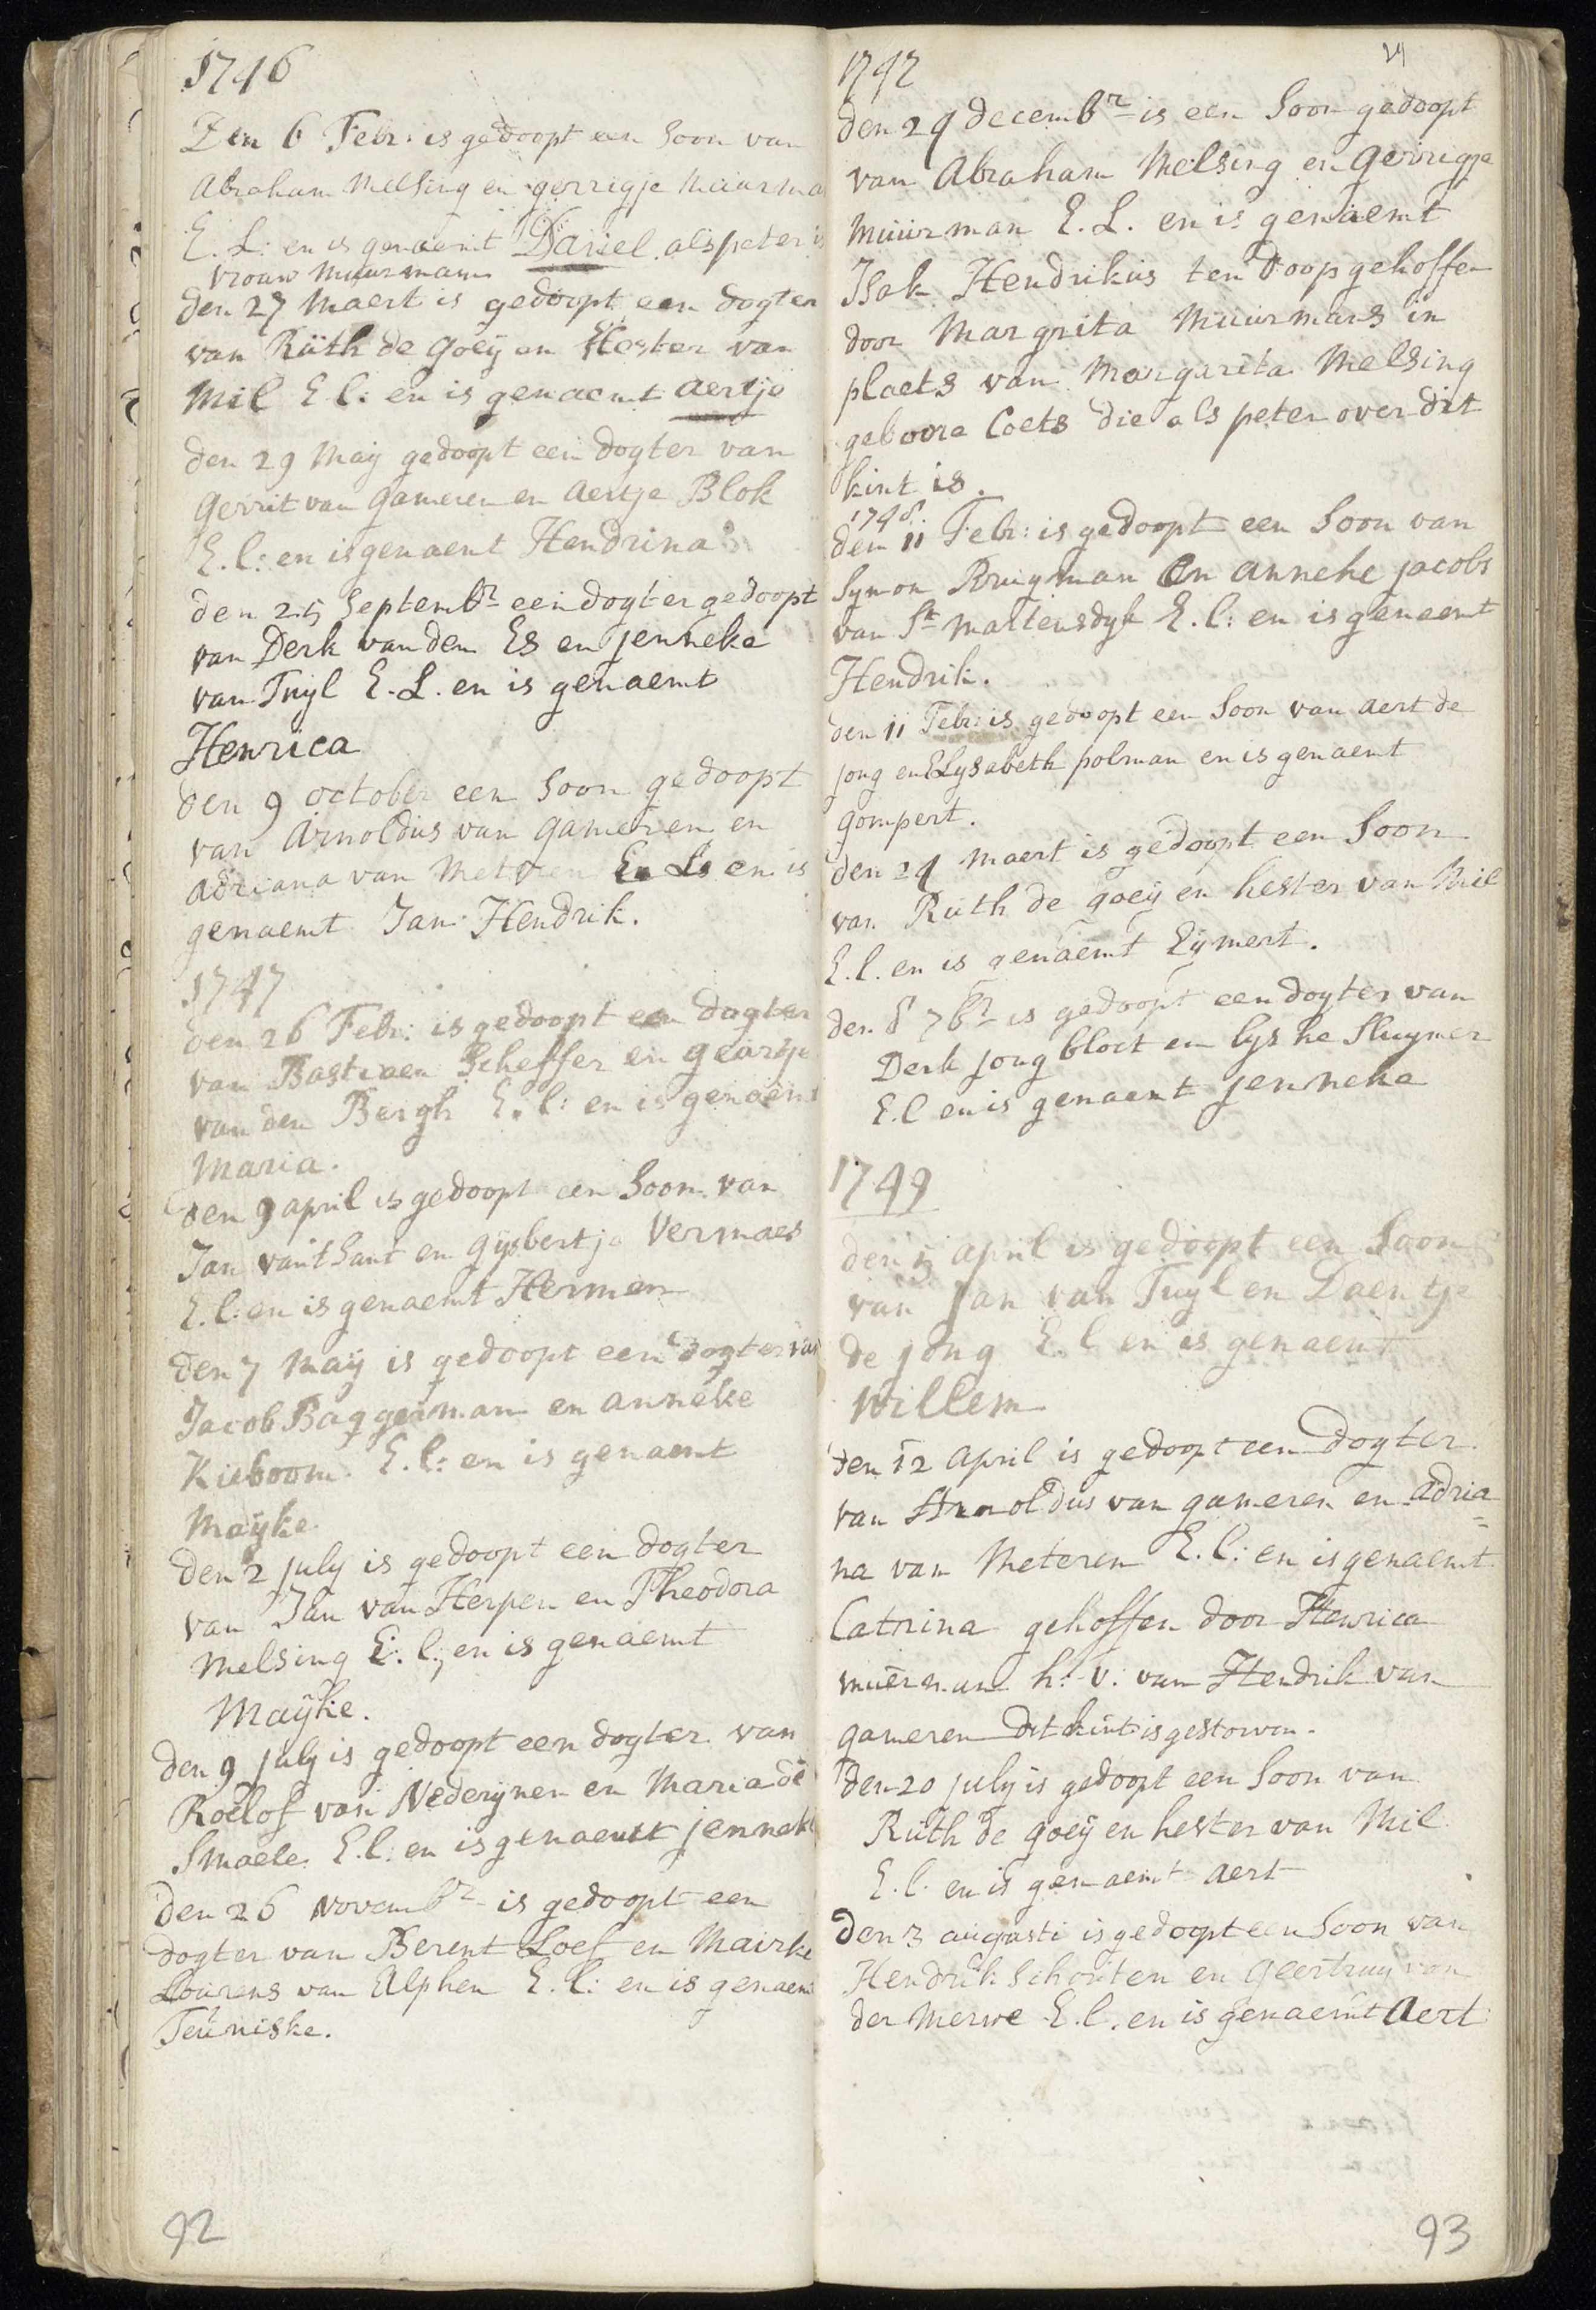 1746
Den 6 Febr: is gedoopt een Soon van
Abraham Melsing en gerrigje Muurma
E. L: en is genaemt Daniel als peter is
vrouw Muurmans
den 27 Maert is gedoopt een dogter
van Rüth de goeÿ en Hester van
Mil E l: en is genaemt aertje
den 29 Maÿ gedoopt een dogter van
Gerrit van Gameren en Aertje Blok
E. l: en is genaent Hendrina
den 25 Septembr een dogter gedoopt
van Derk van den Es en jenneke
van Tuÿl E. L. en is genaemt
Henrica
den 9 october een Soon gedoopt
van Arnoldus van Gameren en
Adriana van Metren E. L. en is
genaemt Jan Hendrik.
1747
den 26 Febr: is gedoopt een dogter
van Bastiaen Scheffer en geartje
van den Bergh E. l: en is genaemt
Maria.
den 9 april is gedoopt een Soon van
Jan van't Sant en Gijsbertje Vermaes
E. l: en is genaemt Hermen
den 7 Maÿ is gedoopt een Dogter van
Jacob Baggerman en anneke
Kieboom. E. l: en is genaemt
Maÿke.
den 2 july is gedoopt een dogter
van Jan van Herpen en Theodora
Melsing E. l; en is genaemt
Maÿke.
den 9 july is gedoopt een dogter van
Roelof van Nederijnen en Maria de
Smaele. E. l: en is genaemt jenneke
den 26 Novembr is gedoopt een
dogter van Berent Loef en Mairke
Lourens van Alphen E. l: en is genaemt
Teuniske.
92
1747
24
den 29 decembr is een Soon gedoopt
van Abraham Melsing en Gerrigje
Müürman E. L. en is genaemt
Isak Hendrikus ten doop gehoffen
door Margrita Müürmans in
plaets van Margarita Melsing
geboore Coets die als peter over dit
kint is.
1748.
den 11 Febr: is gedoopt een Soon van
Symon Brugman En anneke jacobs
van St Martensdyk E. l: en is genaemt
Hendrik.
den 11 Febr: is gedoopt een Soon van Aert de
jong en Elysabeth polman en is genaemt
gompert.
den 24 Maert is gedoopt een Soon
van Rüth de goeÿ en hester van Mil
E. l. en is genaemt Eÿmert.
den 8 7br is gedoopt een dogter van
Derk jong bloet en lyske Sluymer
E. l en is genaemt jenneke
1749
den 5 april is gedoopt een Soon
van Jan van Tuyl en Daentje
de jong E. l. en is genaemt
Willem
den 12 april is gedoopt een dogter
van Arnoldus van gameren en adria=
na van Meteren E. l: en is genaemt
Catrina gehoffen door Henrica
müerman h: v: van Hendrik van
gameren dit kint is gestorven.
den 20 july is gedoopt een Soon van
Rüth de goeÿ en hester van Mil
E. l. en is genaemt aert
den 3 augusti is gedoopt een Soon van
Hendrik Schouten en Geertruy van
der Merwe E. l. en is genaemt Aert
93